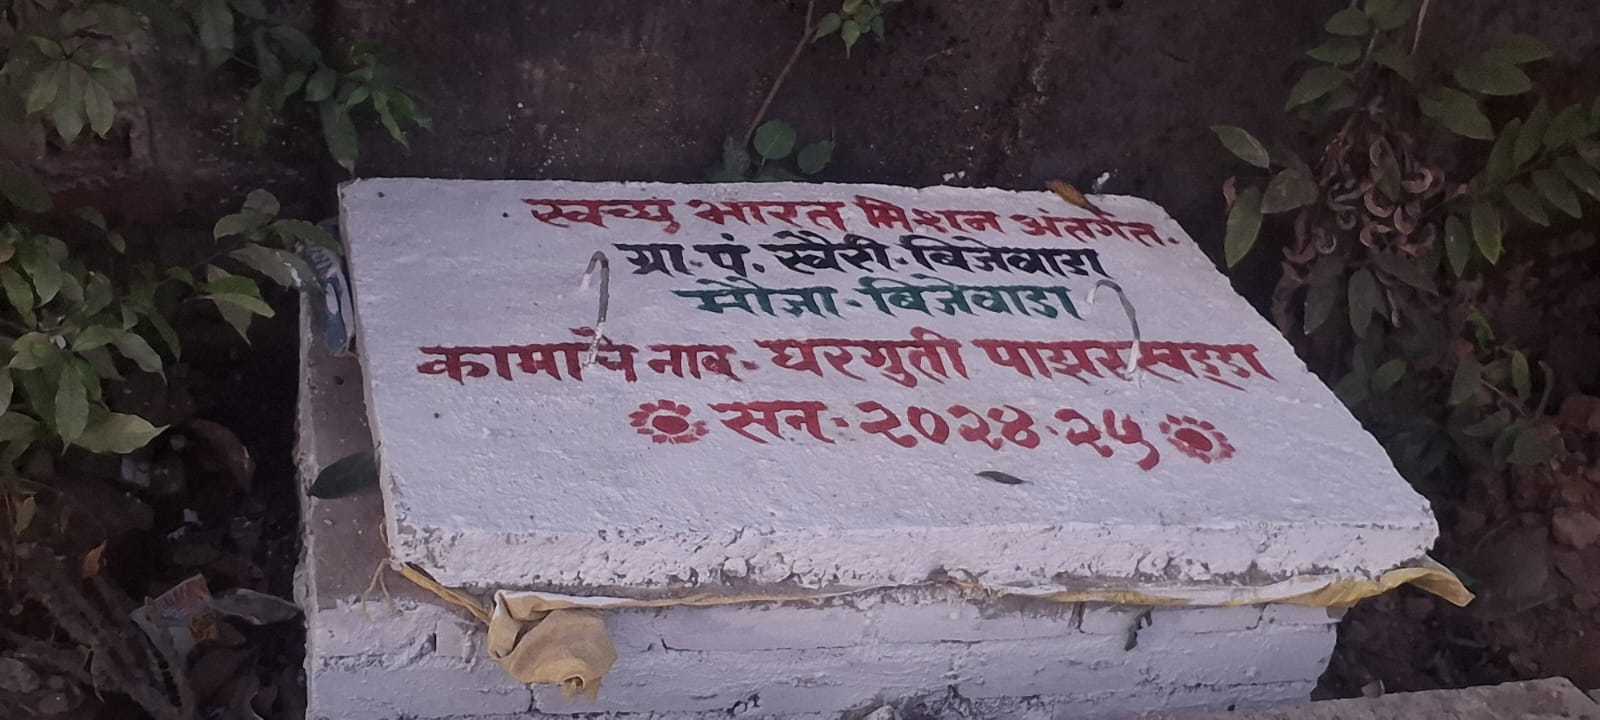 स्वच्छ भारत मिशन अंतर्गत.
ग्रा. पं. खैरी-बिजेवाडा
मौजा-बिजेवाडा
कामाचे नाव-घरगुती पाझरखड्डा
सन-२०२४-२५